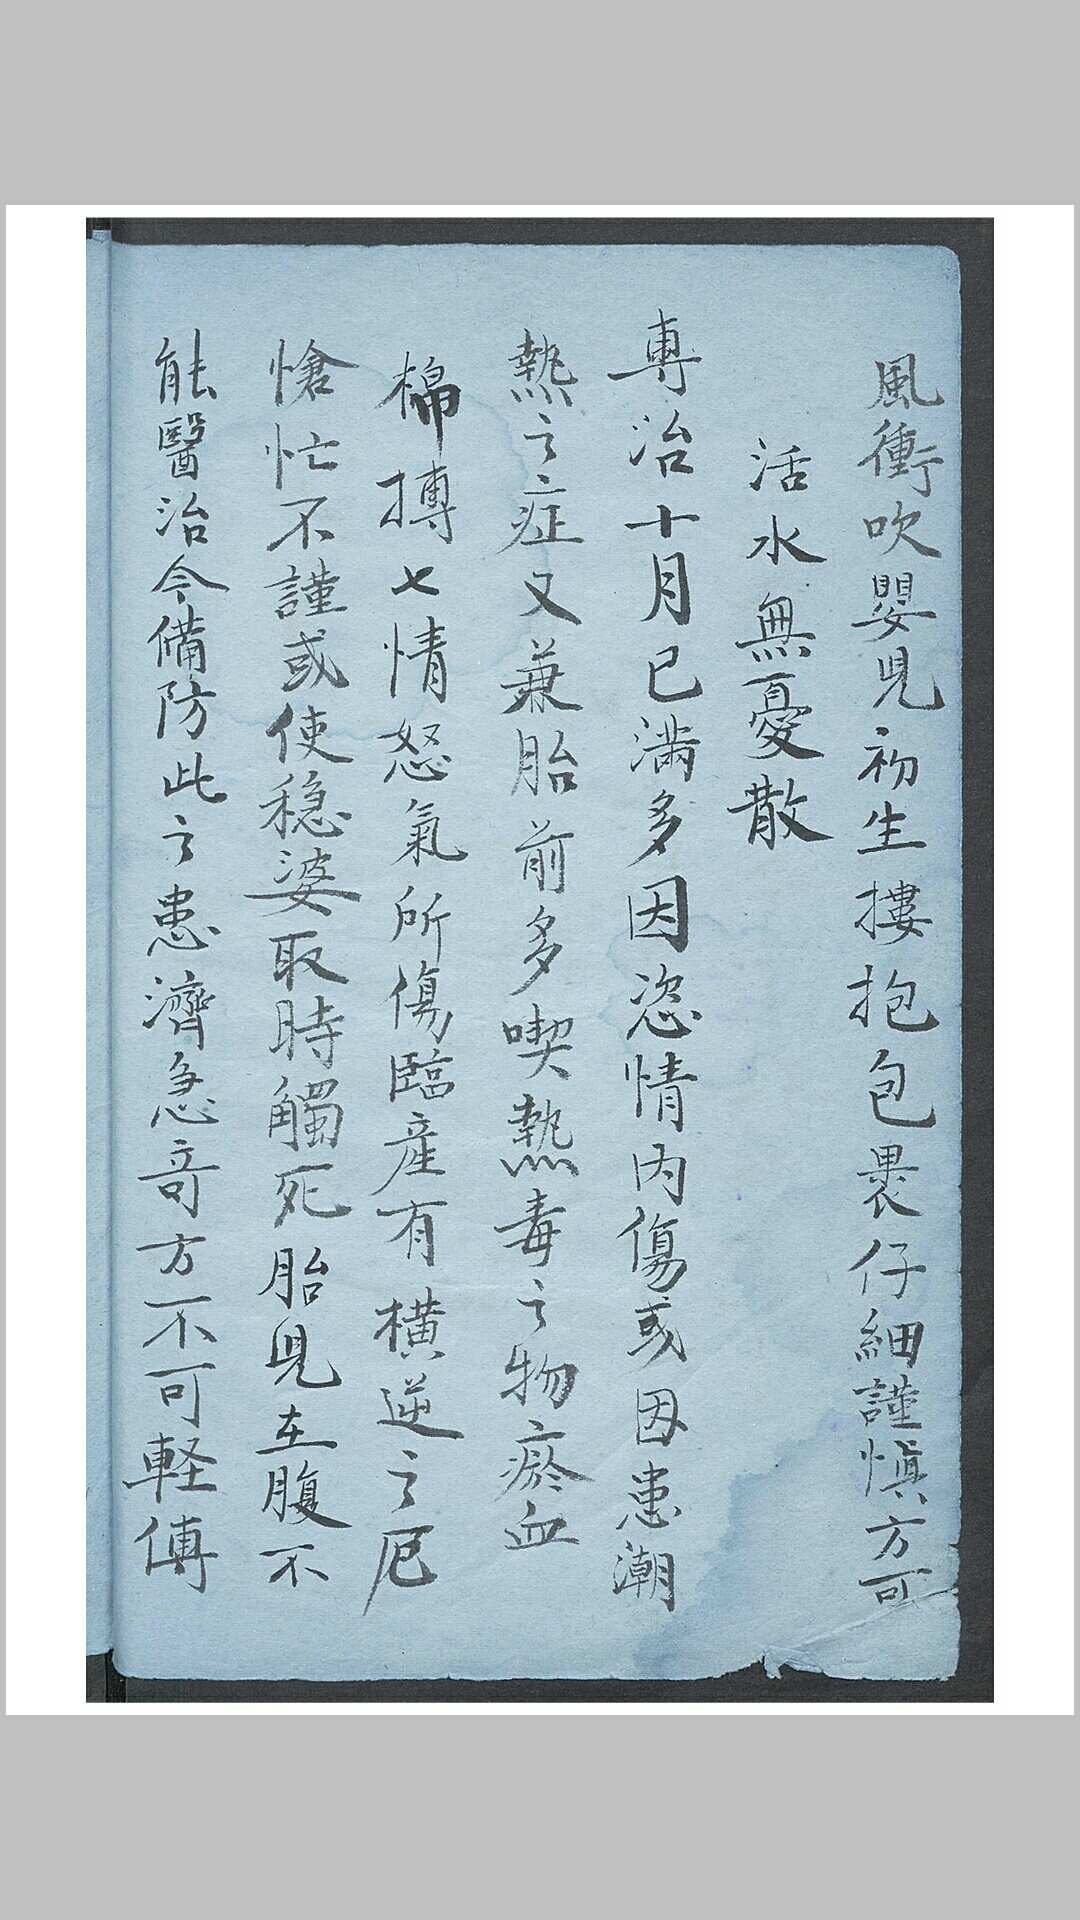 風衝吹嬰児初生摟抱包裹仔細謹慎方可
活水無憂散
專治十月已满多因恣情内傷或因患潮
熱之症又兼胎前多喫熱毒之物瘀血
棉搏七情怒氣所傷臨產有横逆之厄
愴忙不謹或使穏婆取時觸死胎児在腹不
能醫治令備防此之患濟急竒方不可軽傅